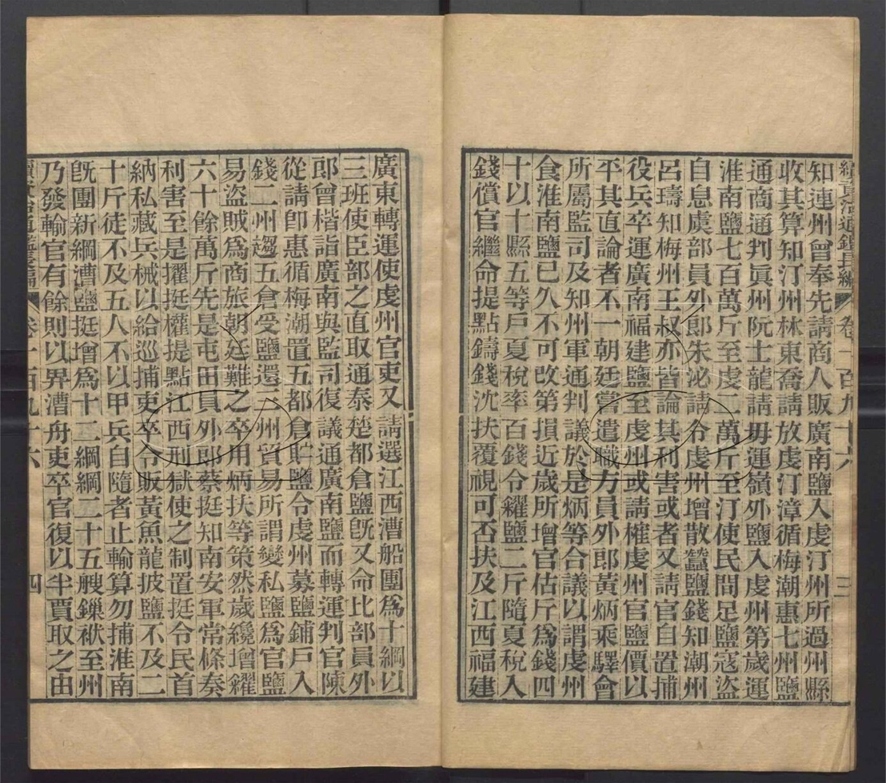 知連州曾奉先請商人販廣南鹽入虔汀州所過州縣
收其算知汀州林東喬請放虔汀漳循梅潮惠七州鹽
通商通判眞州阮士龍請毋運嶺外鹽入虔州第歲運
淮南鹽七百萬斤至虔二萬斤至汀使民間足鹽寇盜
自息虞部員外郎朱泌請令虔州增散蠶鹽錢知潮州
呂璹知梅州王叔亦皆論其利害或者又請官自置捕
役兵卒運廣南福建鹽至虔州或請榷虔州官鹽價以
平其直論者不一朝廷嘗遣職方員外郎黃炳乘驛會
所屬監司及知州軍通判議於是炳等合議以謂虔州
食淮南鹽已久不可改第損近歲所增官估斤爲錢四
十以十縣五等戶夏稅率百錢令糴鹽二斤隨夏稅入
錢償官繼命提點鑄錢沈扶覆視可否扶及江西福建
續資治通鑑長編 卷一百九十六 三
廣東轉運使虔州官吏又請選江西漕船團爲十綱以
三班使臣部之直取通泰楚都倉鹽旣又命比部員外
郎曾楷詣廣南與監司復議通廣南鹽而轉運判官陳
從請卽惠循梅潮置五都倉貯鹽令虔州募鹽鋪戶入
錢二州趨五倉受鹽還二州貿易所謂變私鹽爲官鹽
易盜賊爲商旅朝廷難之卒用炳扶等策然歲纔增糴
六十餘萬斤先是屯田員外郎蔡挺知南安軍常條奏
利害至是擢挺權提點江西刑獄使之制置挺令民首
納私藏兵械以給巡捕吏卒令販黃魚龍披鹽不及二
十斤徒不及五人不以甲兵自隨者止輸算勿捕淮南
旣團新綱漕鹽挺增爲十二綱綱二十五艘鏁袱至州
乃發輸官有餘則以畀漕舟吏卒官復以半賈取之由
續資治通鑑長編 卷一百九十六 四